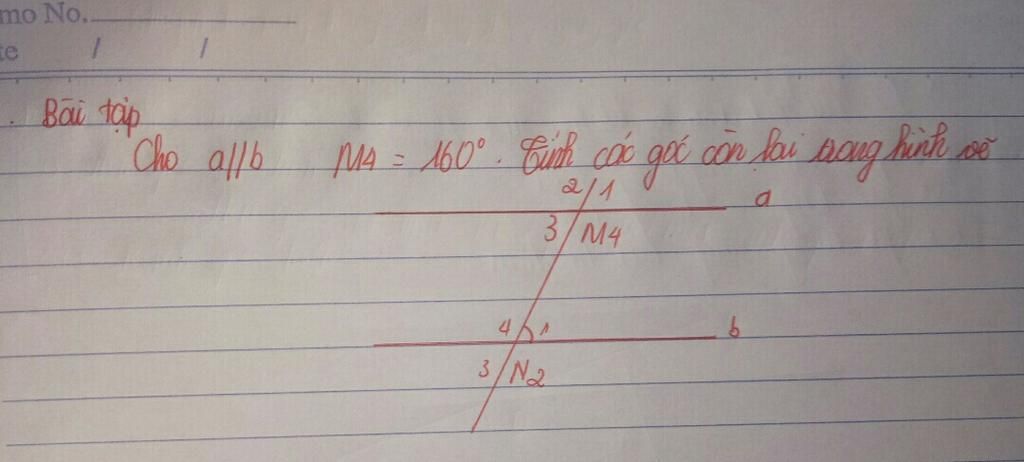 mo No.
te / /
. Bài tập
Cho a//b M4 = 160°. Tính các góc còn lại trong hình vẽ
2 1 a
3 M4
4 1 b
3 N2